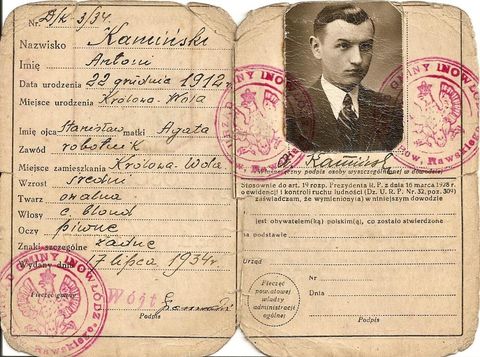 Nr. D/K-3/34.
Nazwisko Kamiński
Imię Antoni
Data urodzenia 22 grudnia 1912 r.
Miejsce urodzenia Królowa-Wola
Imię ojca Stanisław matki Agata
Zawód robotnik
Miejsce zamieszkania Królowa-Wola
Wzrost średni
Twarz owalna
Włosy c. blond
Oczy piwne
Znaki szczególne żadne
Wydany dnia 17 lipca 1934 r.
Pieczęć gminy
Wójt
Podpis
GMINY INOWŁÓDZ
Rawskiego
GMINY INOWŁÓDZ
GMINY INOWŁÓDZ
Rawskiego
A. Kamiński
podpis osoby wyszczególnionej w dowodzie
Stosownie do art. 19 rozp. Prezydenta R. P. z dnia 16 marca 1928 r.
o ewidencji i kontroli ruchu ludności (Dz. U. R. P. Nr. 32, poz. 309)
zaświadczam, że wymieniony(a) w niniejszym dowodzie
jest obywatelem(ką) polskim(ą), co zostało stwierdzone
na podstawie
Urząd
Nr.
Dnia
Pieczęć
powiatowej
władzy
administracji
ogólnej
Podpis